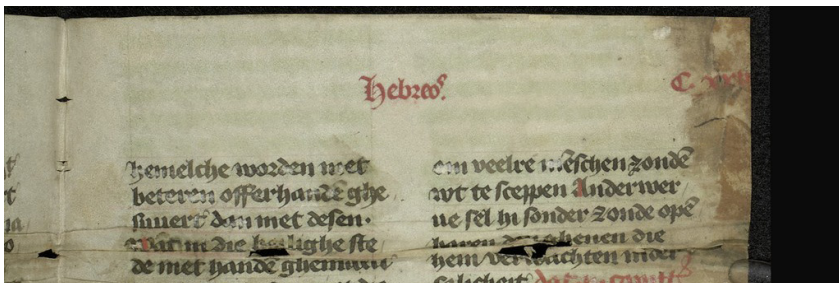 Hebreoꝰ.
C.
hemelche worden met
beteren offerhandē ghe
suuert dan met desen.
Wāt in die heilighe ste
de met handē ghemaect
om veelre mēschen zondē
wt te sceppen Anderwer
ue sel hi sonder zonde opē
baren den ghenen die
hem verwachten inder
salicheit